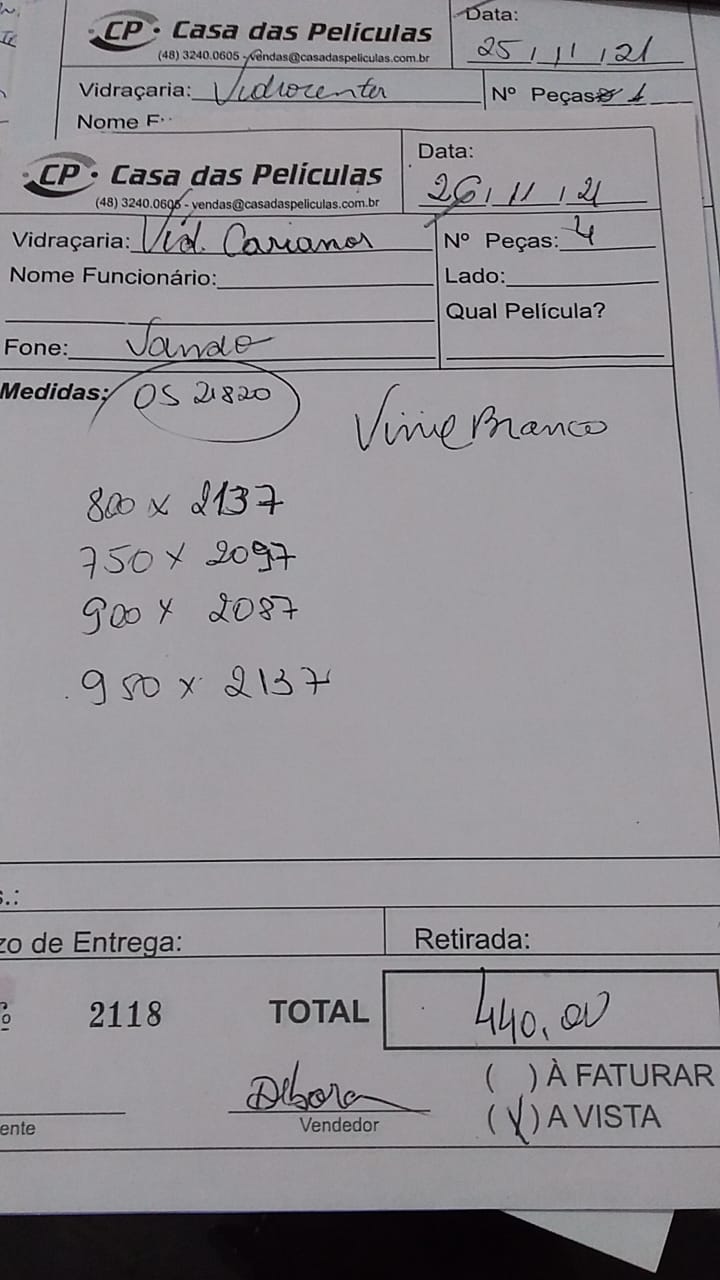 CP · Casa das Películas
(48) 3240.0605 - vendas@casadaspeliculas.com.br
Data:
25, 11, 21
Vidraçaria: Vidrocenter
Nº Peças 1
Nome F
CP · Casa das Películas
(48) 3240.0605 - vendas@casadaspeliculas.com.br
Data:
26, 11, 21
Vidraçaria: Vid. Carianos
Nº Peças: 4
Nome Funcionário:
Lado:
Qual Película?
Fone: Vando
Medidas: OS 21820
Vinil Branco
800 x 2137
750 x 2097
900 x 2087
950 x 2137
s.:
zo de Entrega:
Retirada:
º 2118 TOTAL 440,00
Débora
Vendedor
ente
( ) À FATURAR
(X) A VISTA